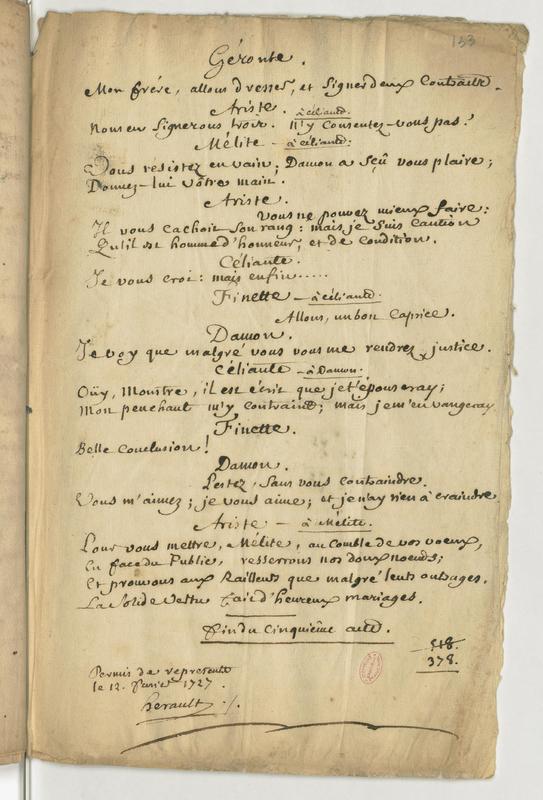 153
Géronte.
Mon frère, allons dresser, et signer deux Contracts.
Ariste. à céliante.
Nous en signerons trois. N'y Consentez-vous pas?
Mélite - à céliante:
Vous résistez en vain; Damon a sçû vous plaire;
Donnez-lui vôtre main.
Ariste.
Vous ne pouvez mieux faire:
Il vous cachoit son rang: mais je suis caution
Qu'il est homme d'honneur, et de condition.
Céliante.
Je vous croi: mais enfin.....
Finette - à céliante.
Allons, un bon Caprice.
Damon.
Je voy que malgré vous vous me rendrez justice.
Céliante - à Damon.
Oüy, Monstre, il est écrit que je t'épouseray;
Mon penchant m'y contraint; mais je m'en vangeray
Finette.
Belle Conclusion!
Damon.
Pestez, sans vous contraindre.
Vous m'aimez; je vous aime; et je n'ay rien à craindre
Ariste - à Mélite.
Pour vous mettre, Mélite, au Comble de vos voeux,
En face du Public, resserrons nos doux noeuds;
Et prouvons aux Railleurs que malgré leurs outrages,
La solide Vertu fait d'heureux mariages.
Fin du Cinquième acte.
518.
378.
Permis de representer
le 12. 1727.
herault